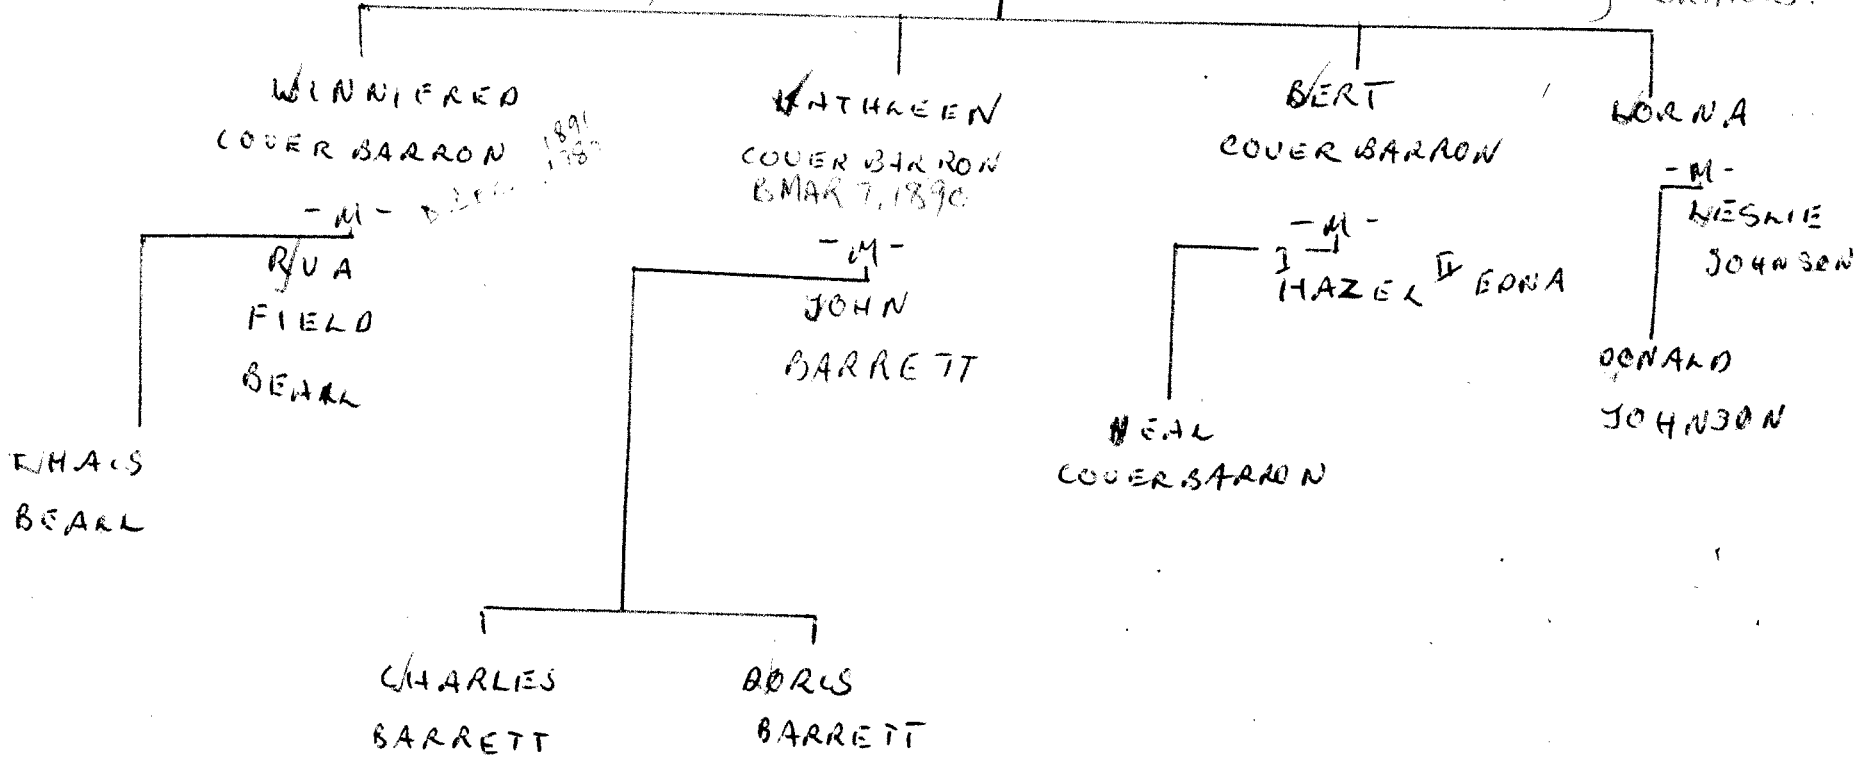 WINNIFRED
COVERBARRON
1891
-M-
RUA
FIELD
BEARL
THAIS
BEARL
KATHLEEN
COVERBARRON
B MAR 7, 1890
-M-
JOHN
BARRETT
CHARLES
BARRETT
DORIS
BARRETT
BERT
COVERBARRON
-M-
I HAZEL II EDNA
NEAL
COVERBARRON
LORNA
-M-
LESLIE
JOHNSON
DONALD
JOHNSON